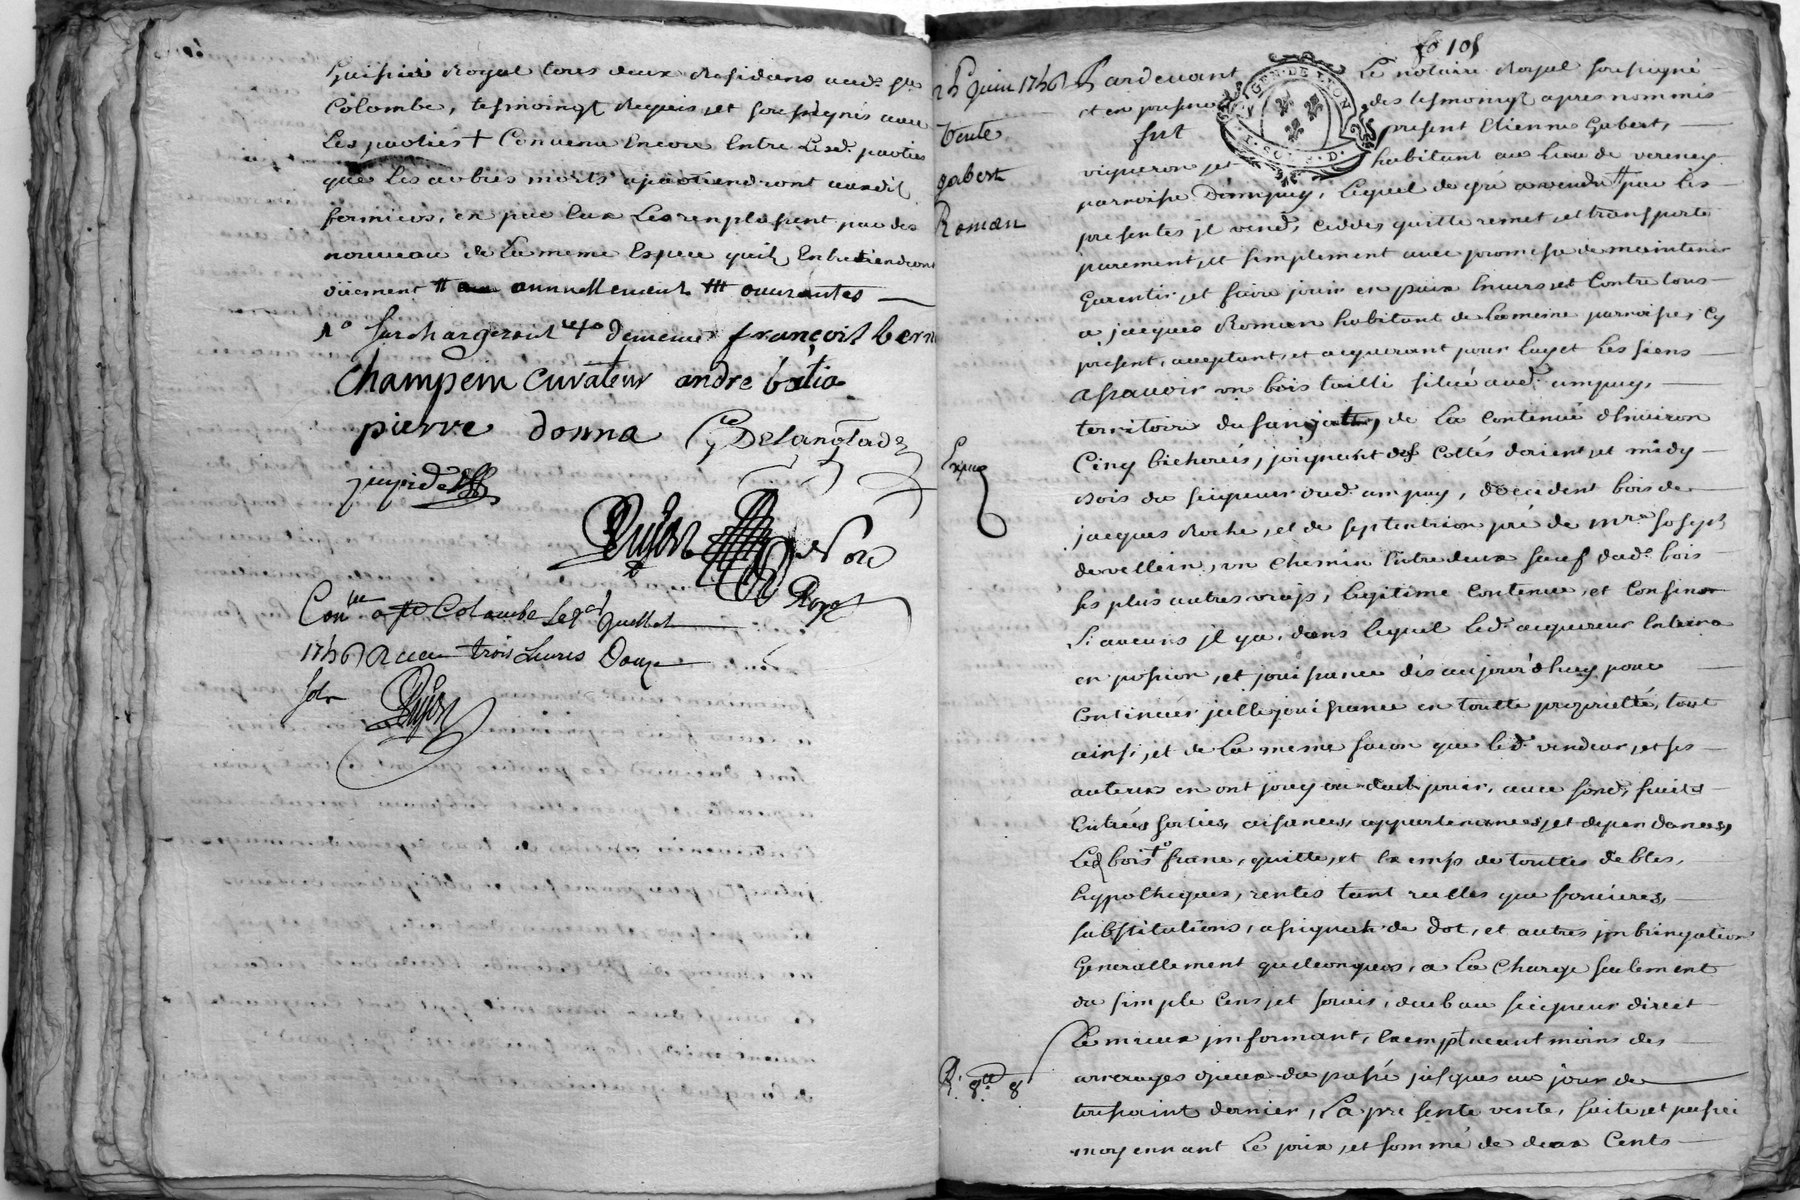 huissier Royal tous deux Residans aud. ste
Colombe, tesmoingt Requis, et soussignés avec
Les parties + Convenu Encore Entre Lesd. parties
que Les arbres morts apartiendront ausdit
fermiers, en par Eux Les remplassant par des
nouveau de La meme Espece quils Entretiendront
düement # annuellement ### ouurantes
1º surchargeront demeure françois bern
Champem Curateur andre batia
pierre donna Delanglade
Dujon
Royal
Con.lle a ste Colombe Le juillet
1756 Receu trois Livres Douze
sols Dujon
fo 105
25 juin 1756
Vente
gabert
Roman
Expée
R: 8.tt 8
GEN. DE LYON
2. SOLS. D.
Pardevant Le notaire Royal soussigné
et en presence des tesmoingt apres nommés
fut present Etienne Gabert,
vigneron, et habitant au Lieu de vereney
parroisse Dampuy, Lequel de gré a vendu # par Les
presentes jl vend, cedde, quitte remet, et transporte
purement, et simplement avec promesse de maintenir
Garentir, et faire jouir en paix Envers, et Contre tous
a jacques Roman habitant de La meme parroisse, Cy
present, acceptant, et acquerant pour Luy et Les siens
assavoir un bois tailli situé aud. ampuy,
territoire du, de La Contenue d'Environ
Cinq bicherées, joignant des Cottés dorient, et midy
bois du seigneur dud. ampuy, d'occident bois de
jacques Roche, et de septentrion pré de mre Joseph
de vellein, un Chemin Entredeux sauf dud. bois
ses plus autres vrays, Legitime Contenue, et Confins
si aucuns jl y a, dans Lequel Led. acquereur Entrera
en possion, et jouissance dés aujourd'huy pour
Continuer jcelle jouissance en toutte proprietté, tout
ainsi, et de La meme facon que Led. vendeur, et ses
auteurs en ont jouy ou dueb jouir, avec fond, fruits
Entrées sorties, aisances, appartenances, et dependances,
Led bois franc, quitte, et Exemps de touttes debtes,
hyppotheques, rentes tant reelles que foncieres,
substitutions, assignat de dot, et autres jmbringation
Generallement quelconques, a La Charge seulement
du simple Cens, et servis, dueb au seigneur direct
Le mieux jnformant, Exempt neantmoins des
arrerages d'jceux du passé jusques au jour de
toussaint dernier, La presente vente, faite, et passée
moyennant Le prix, et somme de deux Cents